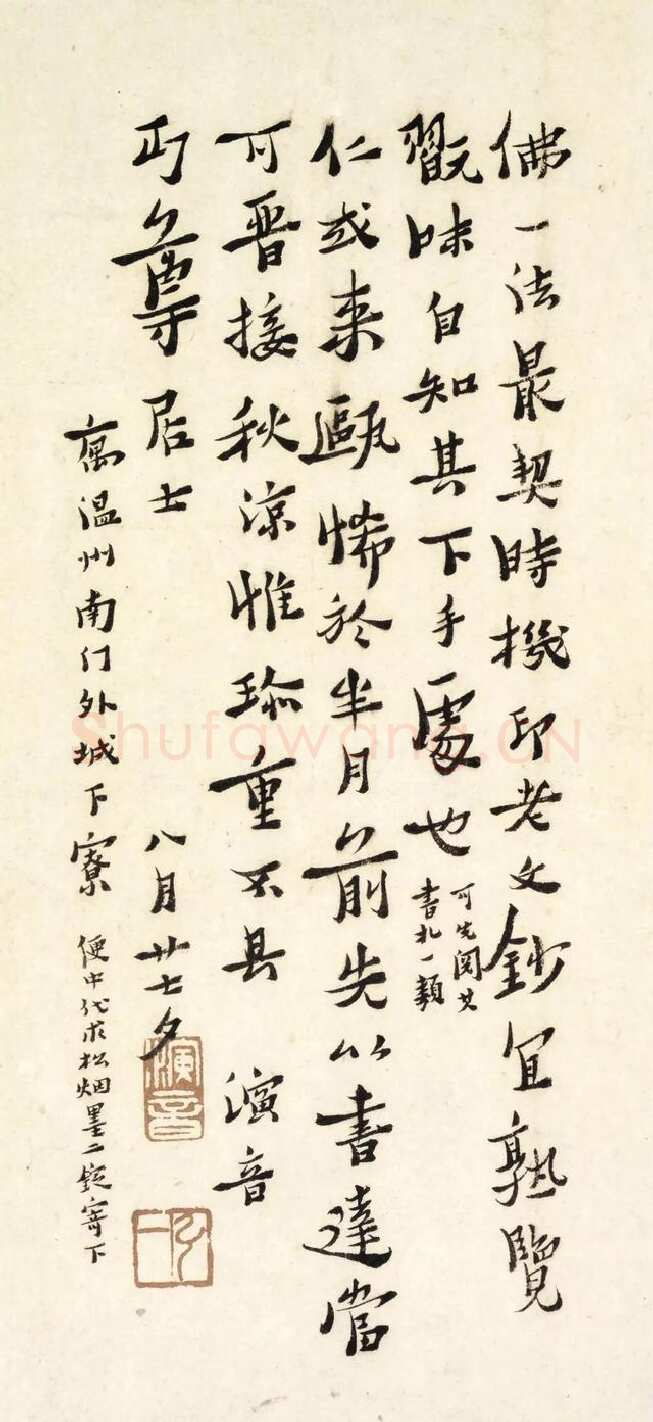 佛一法最契時機印老文鈔宜熟覽
翫味自知其下手處也可先閱其
書札一類
仁或来甌希於半月前先以書達當
可晋接秋涼惟珍重不具 演音
丏尊居士 八月廿七夕
寓温州南门外城下寮 便中代求松烟墨二錠寄下
演音
弘一
Shufawang.CN